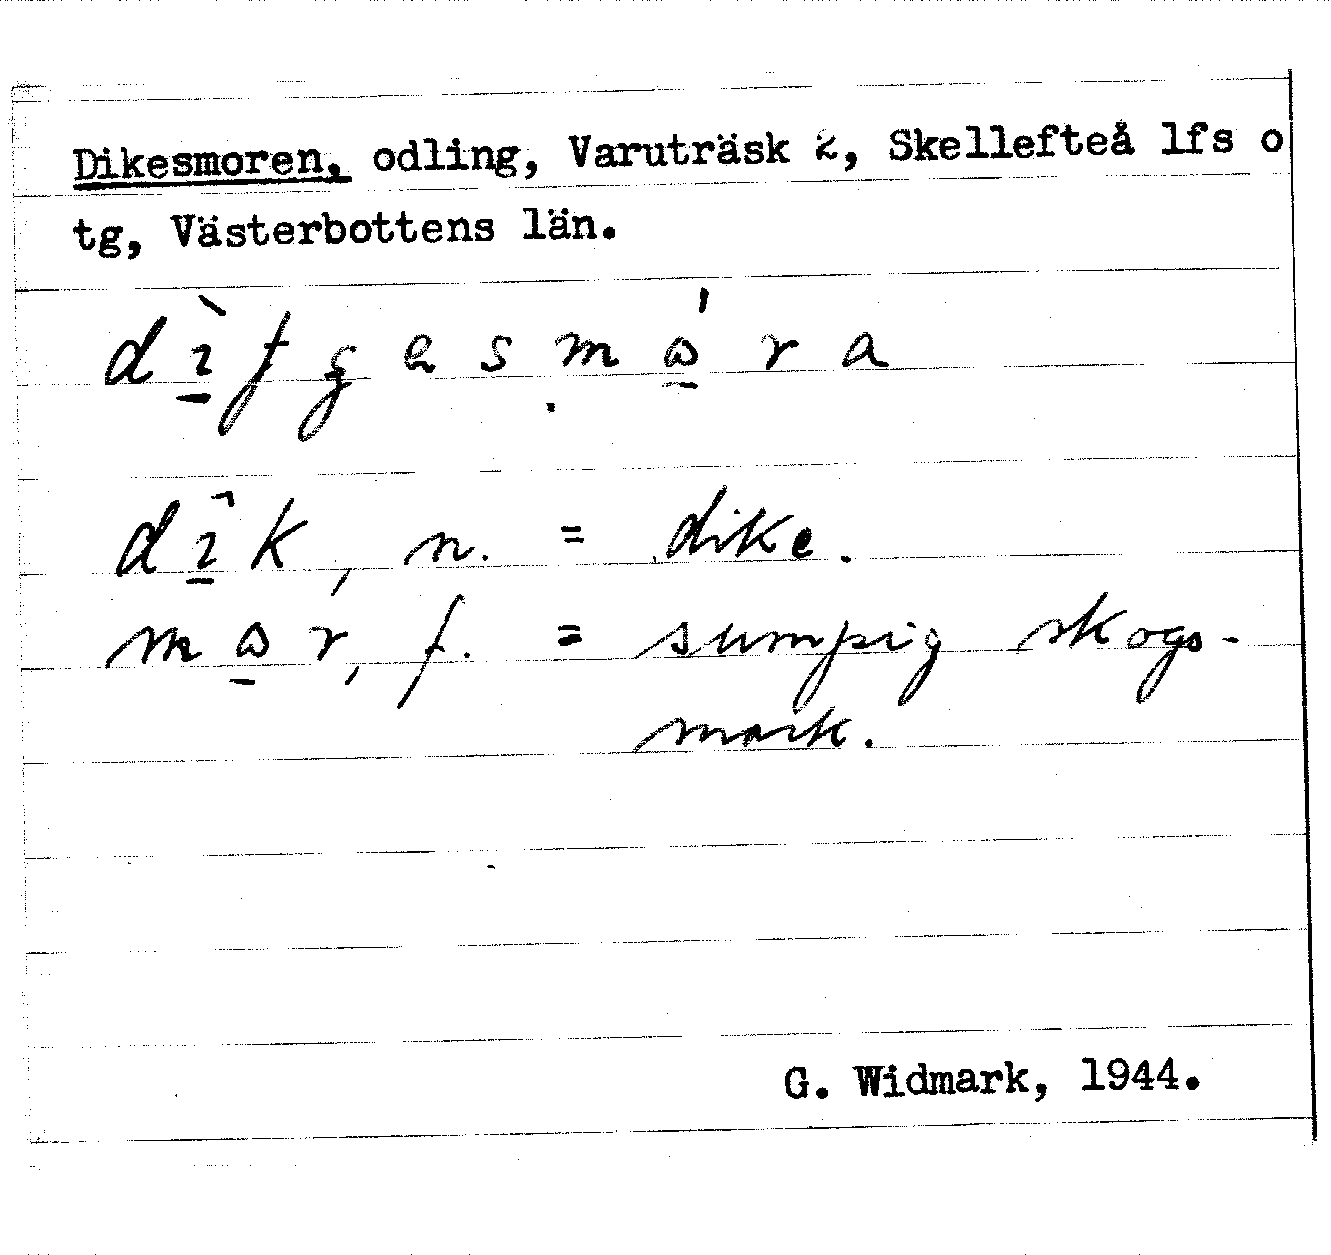 Dikesmoren, odling, Varuträsk 2, Skellefteå lfs o
tg, Västerbottens län.
dīk, n. = dike.
mar, f. = sumpig skogs-
mark.
G. Widmark, 1944.